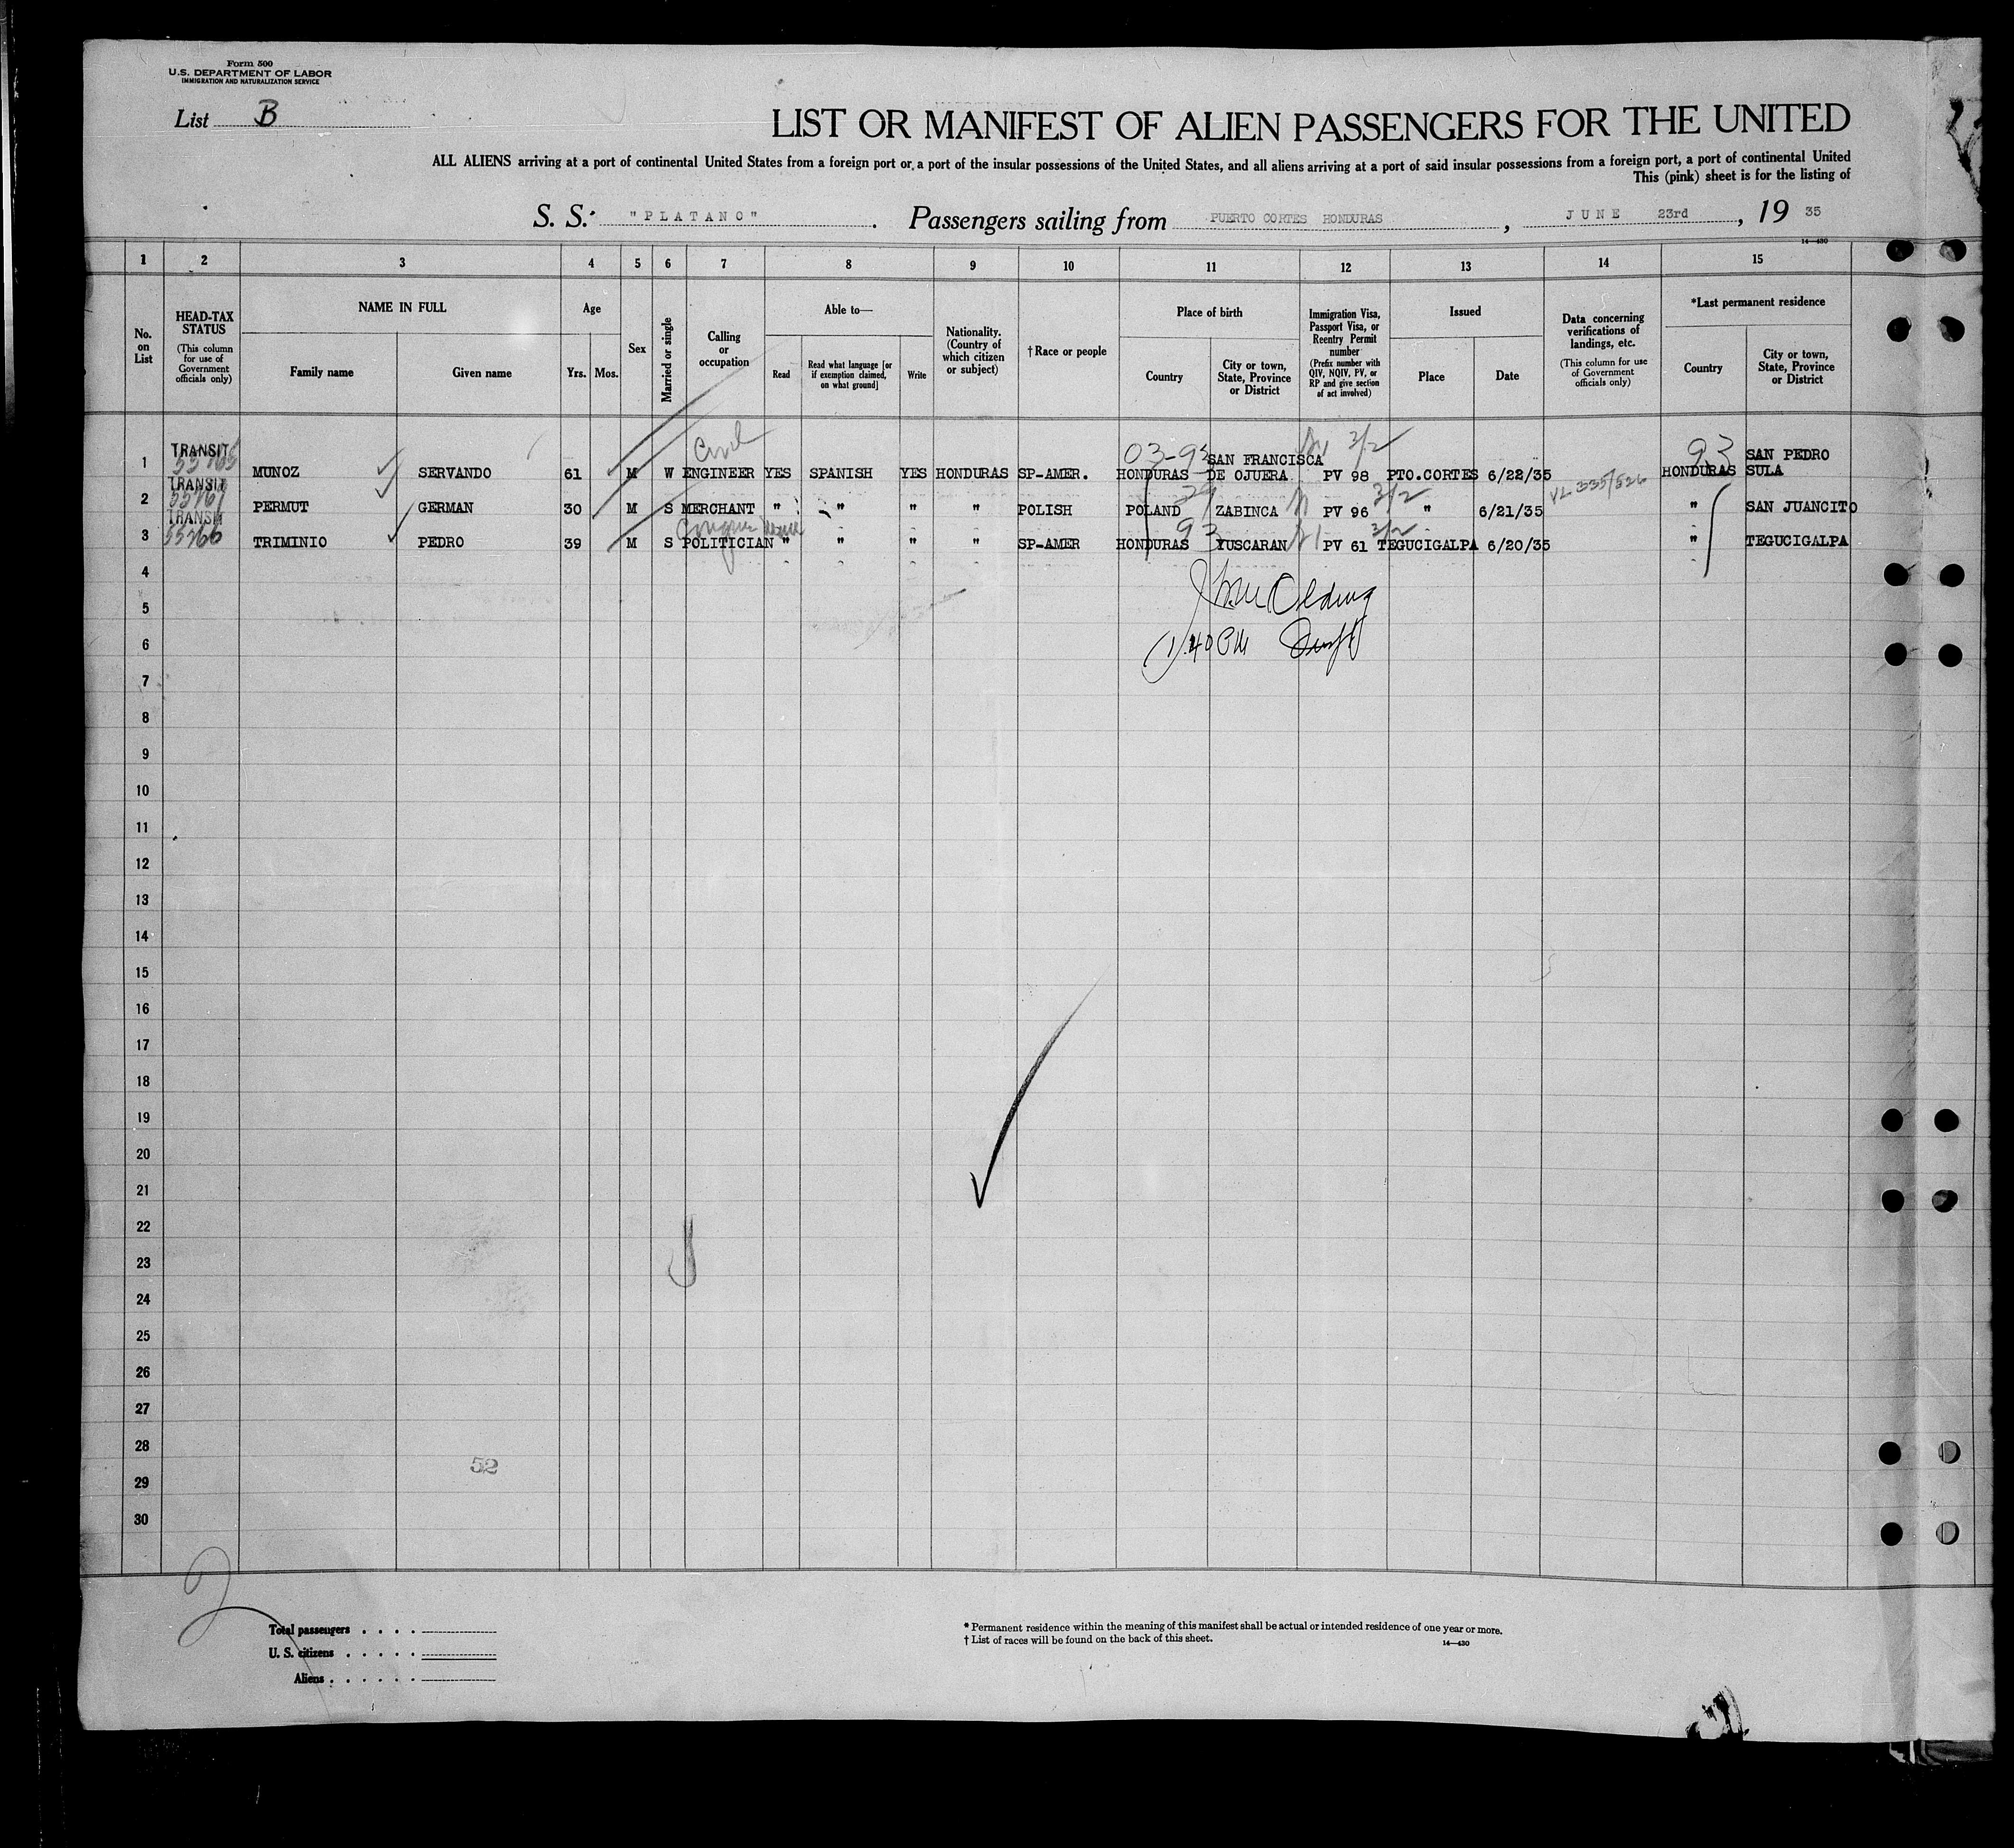 Form 500
U.S. DEPARTMENT OF LABOR
IMMIGRATION AND NATURALIZATION SERVICE
List B
LIST OR MANIFEST OF ALIEN PASSENGERS FOR THE UNITED
ALL ALIENS arriving at a port of continental United States from a foreign port or a port of the insular possessions of the United States, and all aliens arriving at a port of said insular possessions from a foreign port, a port of continental United
This (pink) sheet is for the listing of
S. S. "PLATANO". Passengers sailing from PUERTO CORTES HONDURAS, JUNE 23rd, 19 35
14—430
1 2 3 4 5 6 7 8 9 10 11 12 13 14 15
No. on List
HEAD-TAX STATUS (This column for use of Government officials only)
NAME IN FULL
Family name
Given name
Age
Yrs. Mos.
Sex
Married or single
Calling or occupation
Able to—
Read
Read what language [or if exemption claimed, on what ground]
Write
Nationality. (Country of which citizen or subject)
†Race or people
Place of birth
Country
City or town, State, Province or District
Immigration Visa, Passport Visa, or Reentry Permit number (Prefix number with QIV, NQIV, PV, or RP and give section of act involved)
Issued
Place
Date
Data concerning verifications of landings, etc. (This column for use of Government officials only)
*Last permanent residence
Country
City or town, State, Province or District
Civil 03-93 3/2 93
1 TRANSIT MUNOZ SERVANDO 61 M W ENGINEER YES SPANISH YES HONDURAS SP-AMER. HONDURAS SAN FRANCISCA DE OJUERA PV 98 PTO.CORTES 6/22/35 HONDURAS SAN PEDRO SULA
2 TRANSIT PERMUT GERMAN 30 M S MERCHANT " " " " POLISH POLAND ZABINCA PV 96 3/2 " 6/21/35 " SAN JUANCITO
3 TRANSIT 55766 TRIMINIO PEDRO 39 M S POLITICIAN " " " " SP-AMER HONDURAS 93 YUSCARAN PV 61 3/2 TEGUCIGALPA 6/20/35 " TEGUCIGALPA
4
5
6
1.40 PM
7
8
9
10
11
12
13
14
15
16
17
18
19
20
21
22
23
24
25
26
27
28
52
29
30
Total passengers
U. S. citizens
Aliens
* Permanent residence within the meaning of this manifest shall be actual or intended residence of one year or more.
† List of races will be found on the back of this sheet.
14—430